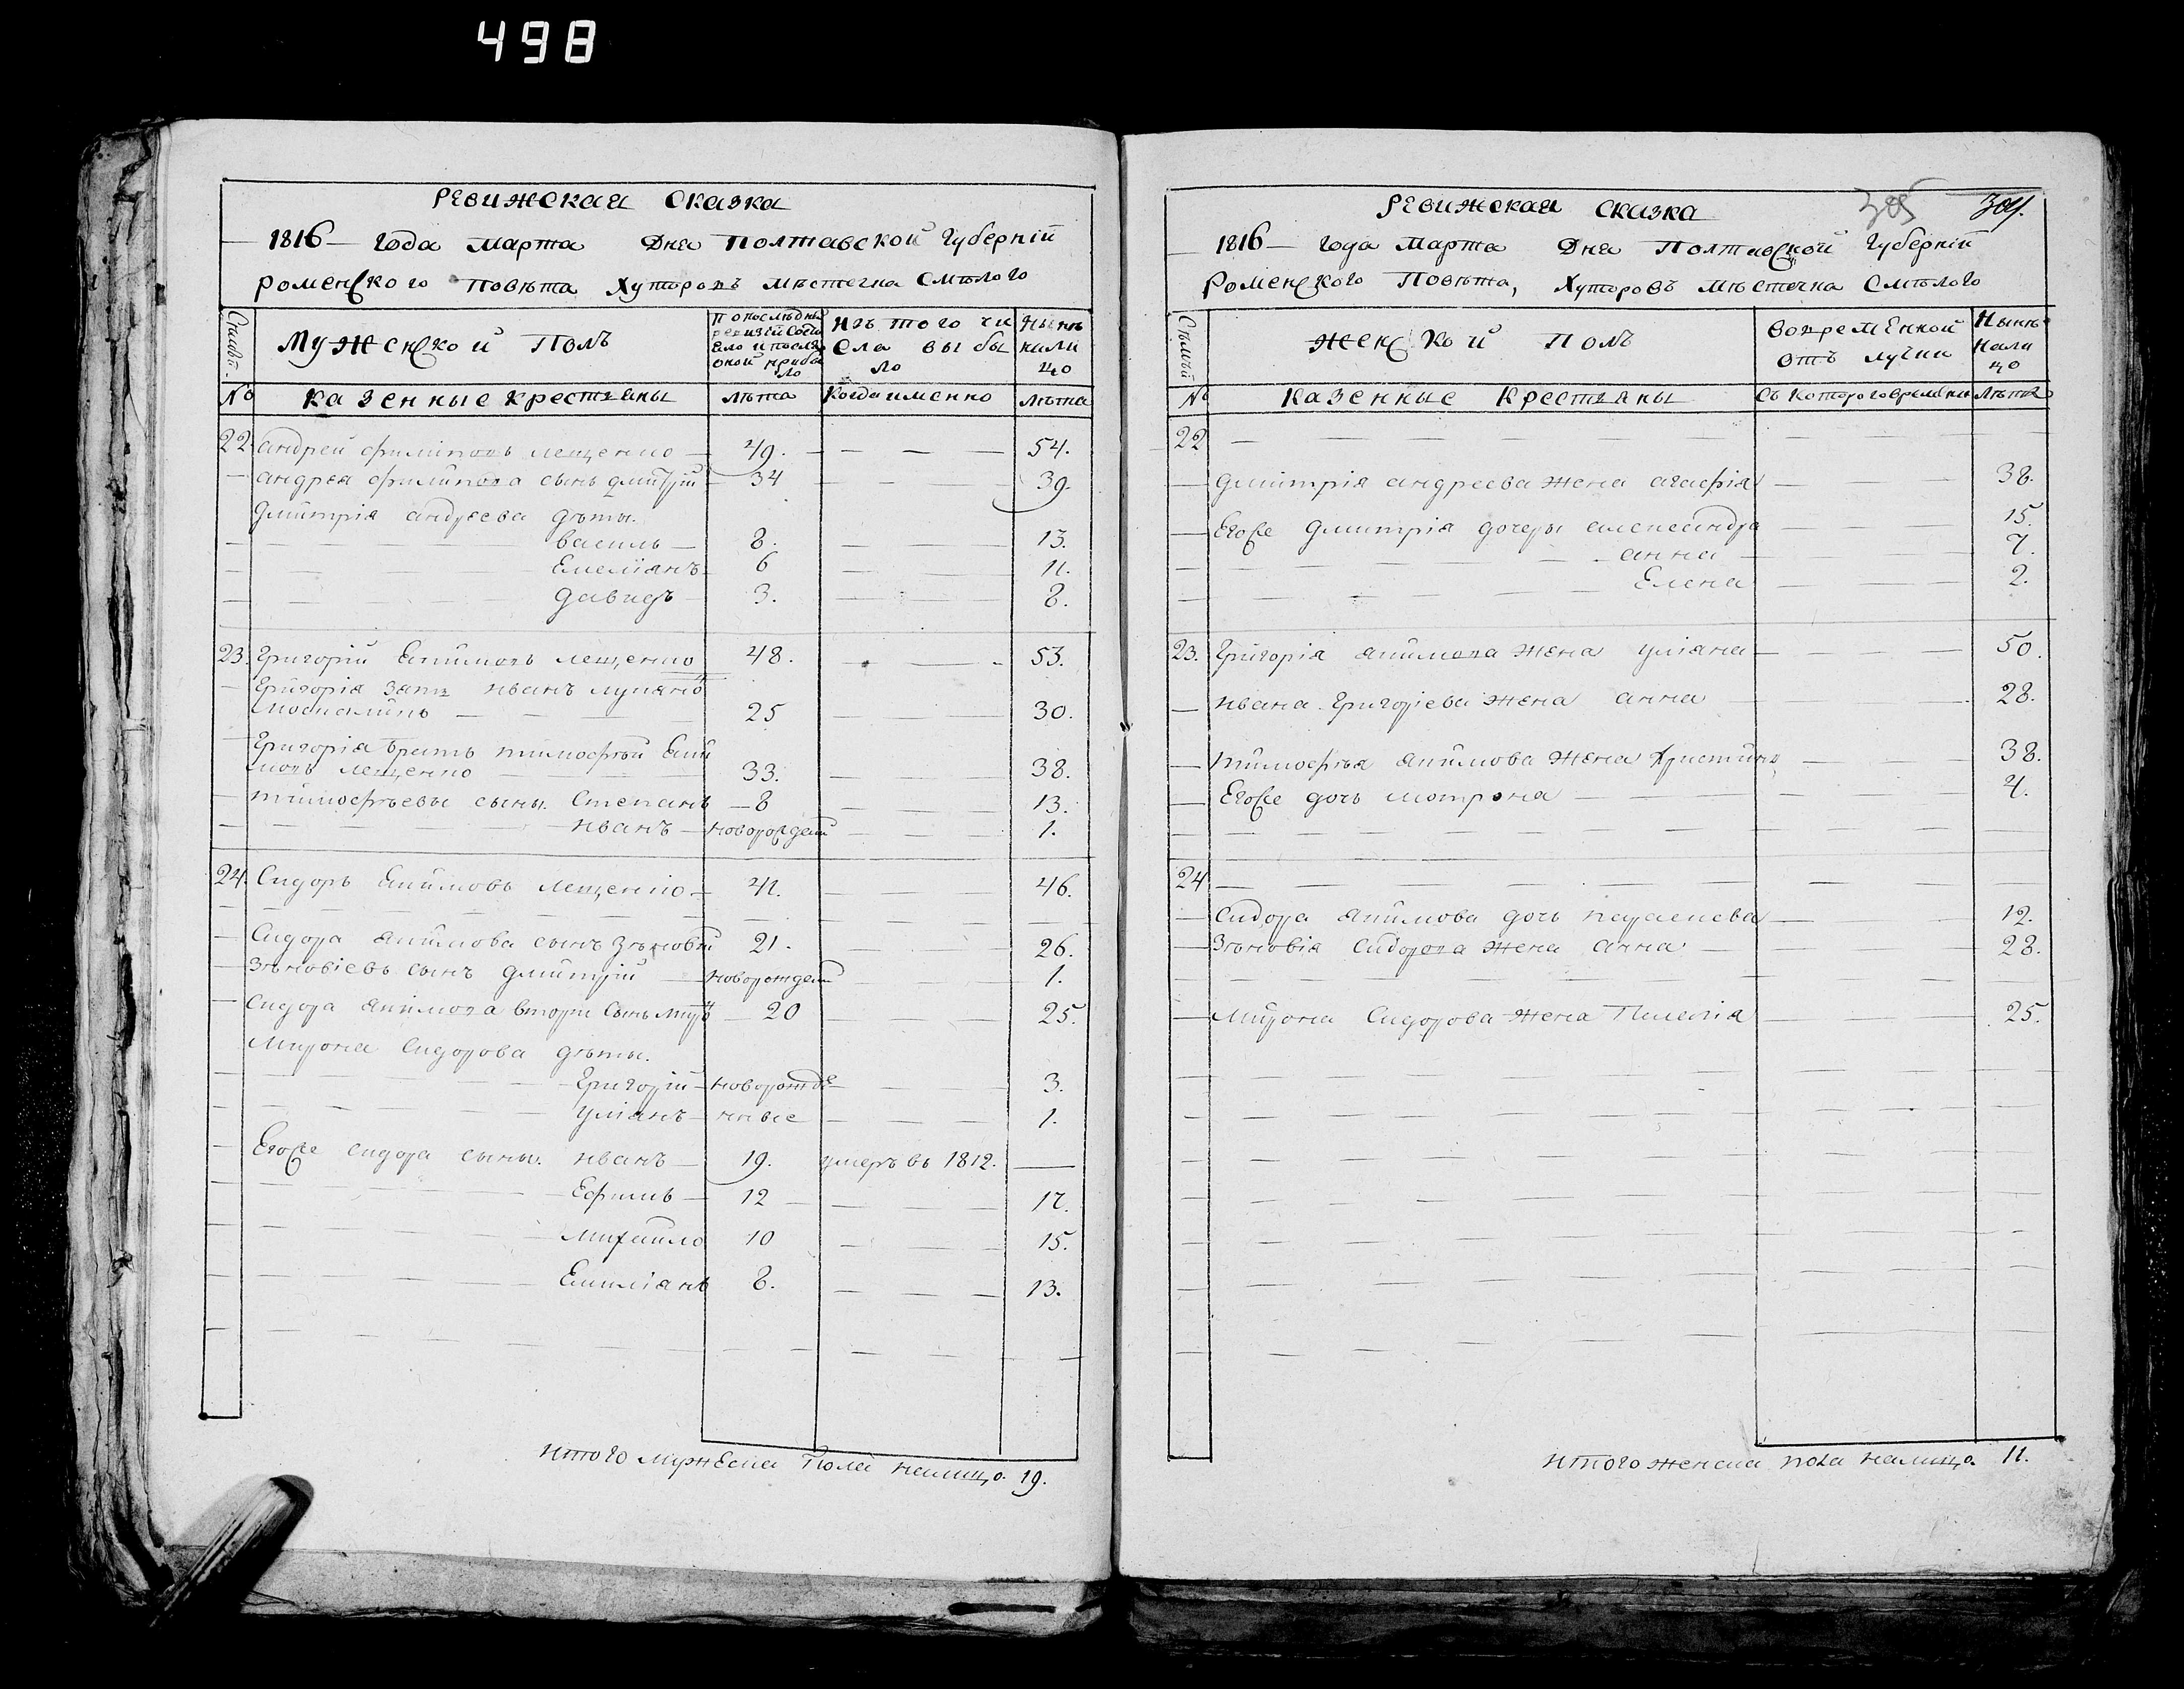 498
РЕВИЖСКАЯ СКАЗКА
1816 года Марта Дня Полтавской Губерній
Роменского Повѣта Хуторовъ Мѣстечка Смѣлого
Мужеской Полъ
По послѣдней ревизіи состояло и послѣ оной прибыло
Изъ того числа выбыло
Нынѣ на лицо
№ Казенные Крестьяны лѣта Когда именно лѣта
22 Андрей Филиповъ Лещенко 49. 54.
Андрея Филипова сынъ Дмитрій 34 39.
Дмитрія Андреева дѣты.
Василь 8. 13.
Емеліянъ 6 11.
Давидъ 3. 8.
23. Григорій Екимовъ Лещенко 48. 53.
Григорія зять Иванъ
25 30.
Григорія братъ Тимофѣй Еки
мовъ Лещенко 33. 38.
Тимофѣевы сыны. Степанъ 8 13.
Иванъ новорожден 1.
24. Сидоръ Екимовъ Лещенко 41. 46.
Сидора Якимова сынъ Зѣновій 21. 26.
Зѣновіевъ сынъ Дмитрій новорожден 1.
Сидора Якимова вторы сынъ Миро 20 25.
Мирона Сидорова дѣты.
Григорій новорожде 3.
Уліянъ нные 1.
Егоже Сидора сыны. Иванъ 19. умеръ въ 1812.
Ефимъ 12 17.
Михайло 10 15.
Емиліянъ 8. 13.
Итого мужеска пола налицо. 19.
305 304.
РЕВИЖСКАЯ СКАЗКА
1816 года Марта Дня Полтавской Губерній
Роменского Повѣта, Хуторовъ Мѣстечка Смѣлого
Женской Полъ
Во временной отълучки
Нынѣ на лицо
№ Казенные Крестьяны Съ которого времени Лѣта
22
Дмитрія Андреева жена Агафія 38.
Егоже Дмитрія дочеры Александра 15.
Анна 7.
Елена 2.
23. Григорія Якимова жена Уліяна 50.
Ивана Григоріева жена Анна 28.
Тимофѣя Якимова жена Христина 38.
Егоже дочь Мотрона 4.
24
Сидора Якимова дочь Парасковѣя 12.
Зѣновія Сидорова жена Анна 28.
Мирона Сидорова жена Пилагія 25.
Итого женска пола налицо. 11.